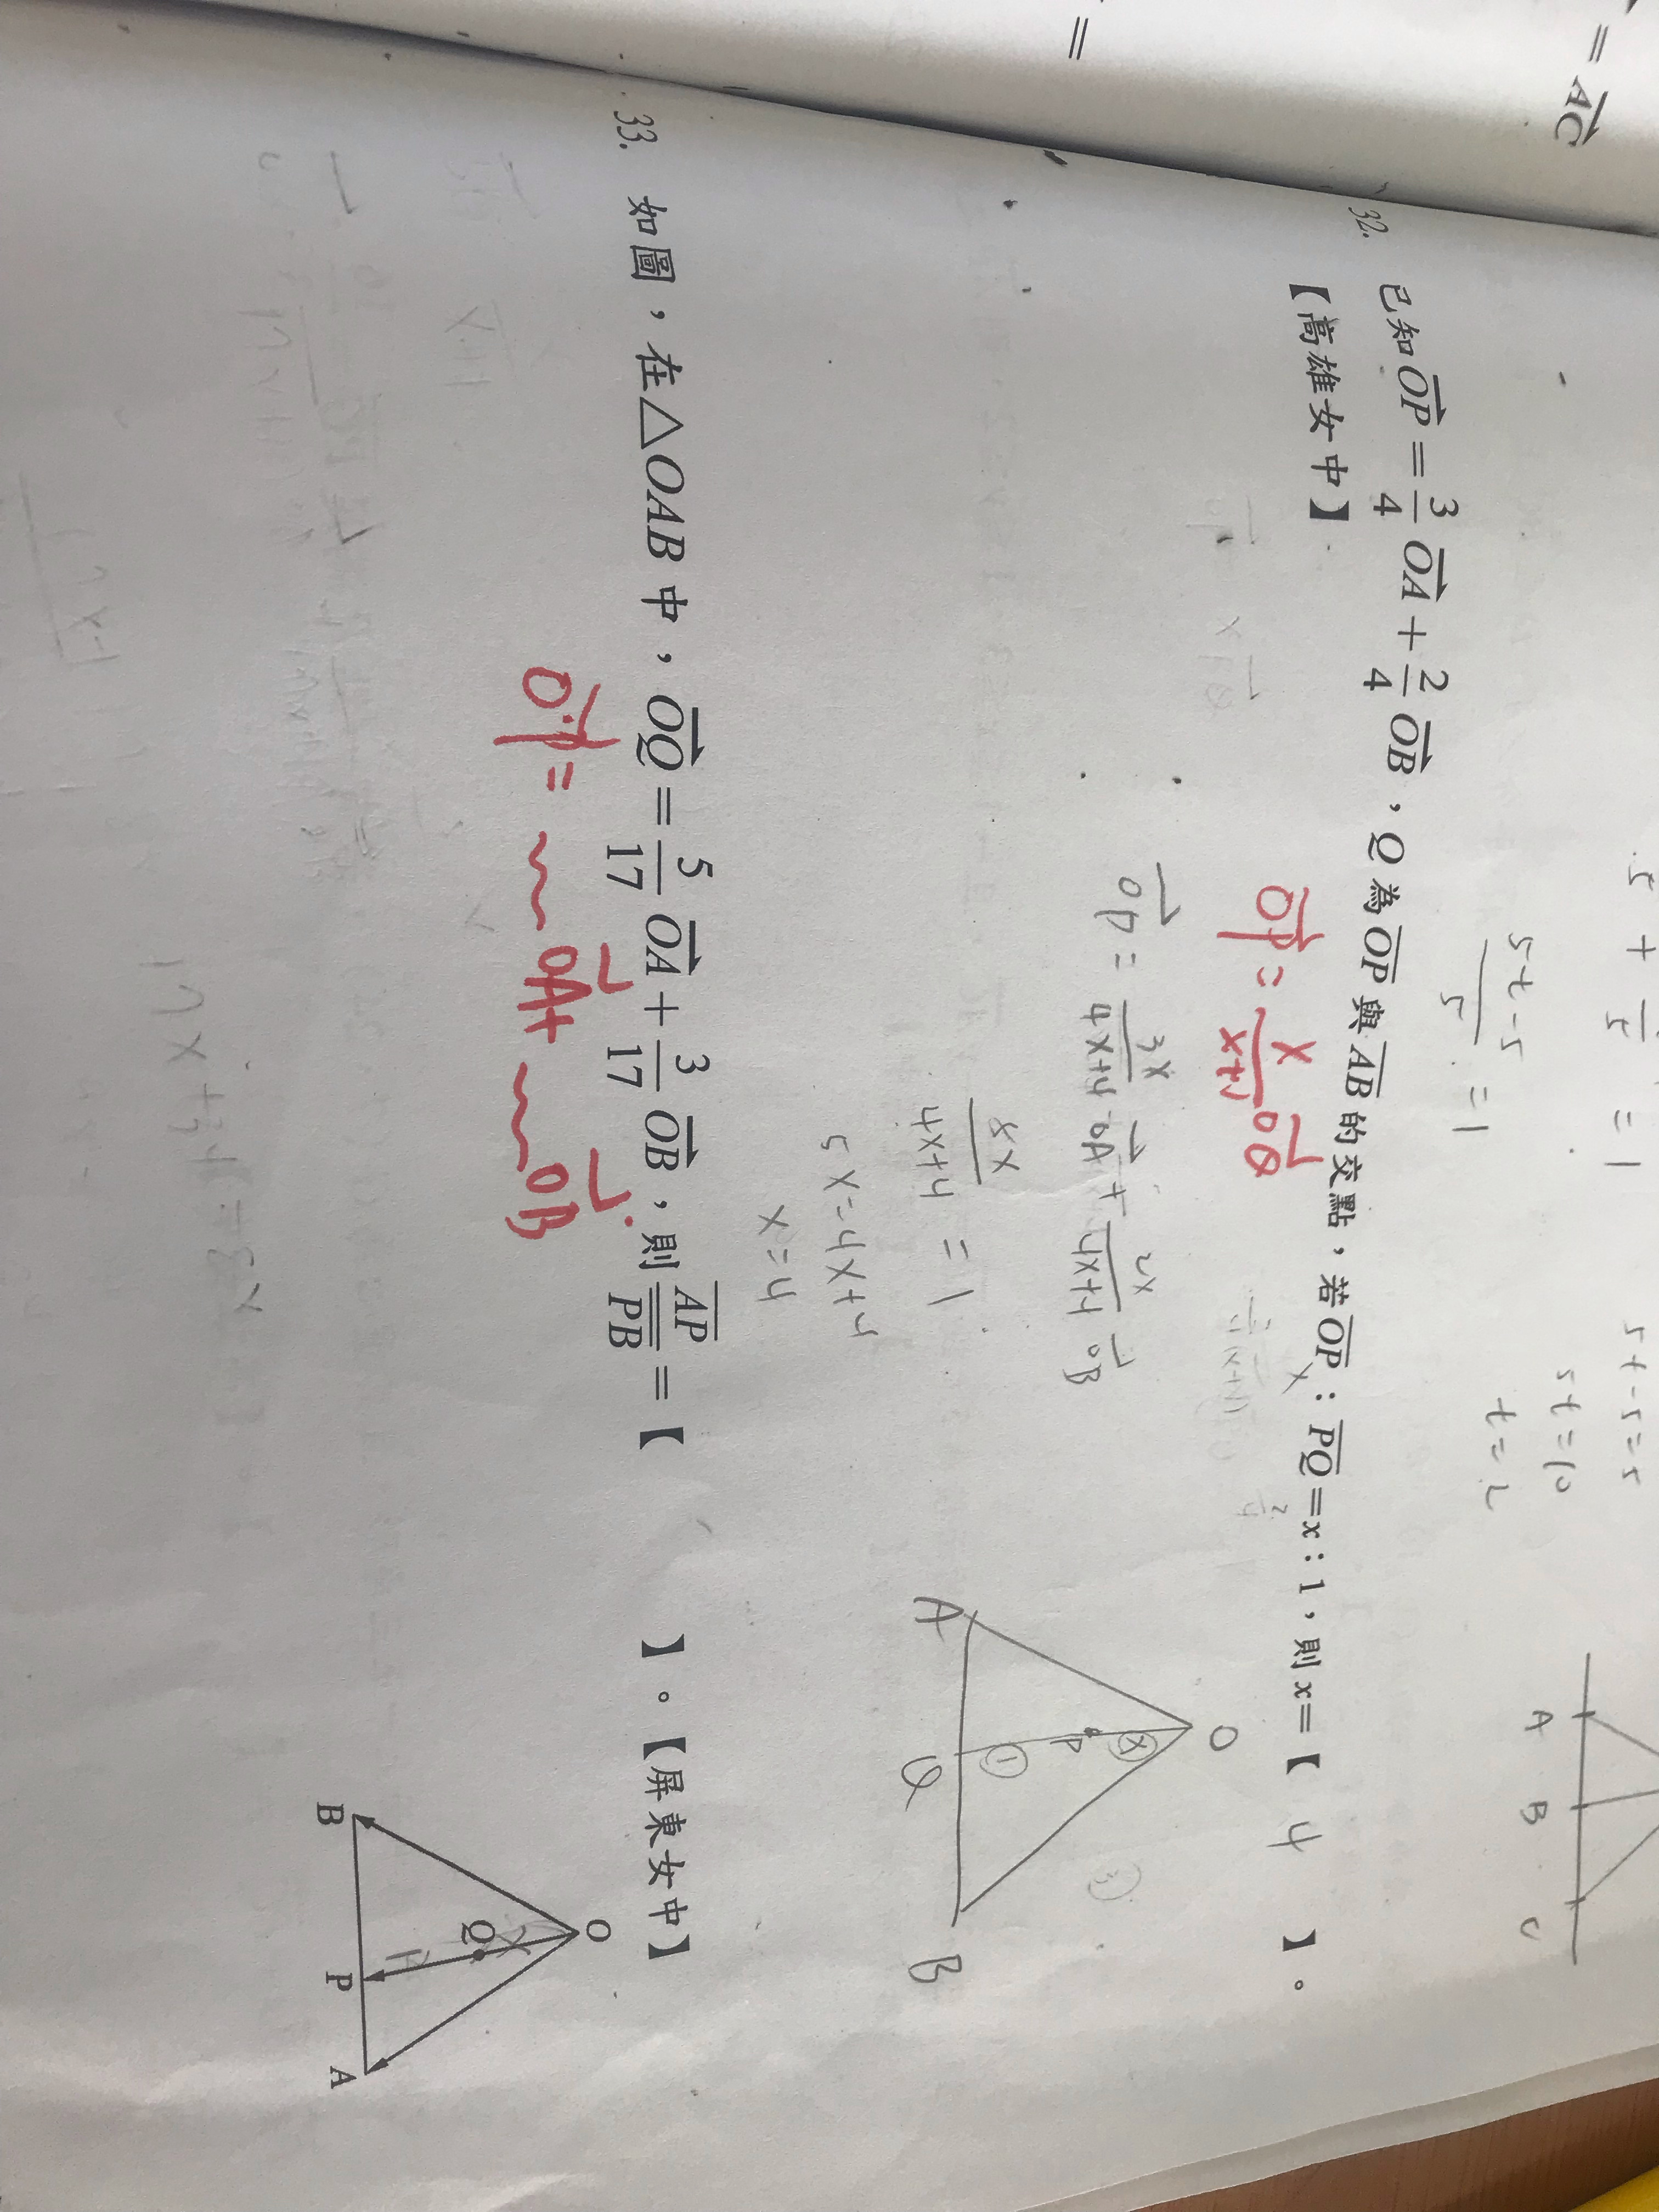 = \overrightarrow{AC}
=
5t-5
5
= 1
= 1
5t-5=5
5t=10
t=2
A
B
C
32. 已知\overrightarrow{OP}=\frac{3}{4}\overrightarrow{OA}+\frac{2}{4}\overrightarrow{OB},Q為\overline{OP}與\overline{AB}的交點,若\overline{OP}:\overline{PQ}=x:1,則x=【 4 】。
【高雄女中】
\overrightarrow{OP}=\frac{x}{x+1}\overrightarrow{OQ}
\overrightarrow{OP}=\frac{3x}{4x+4}\overrightarrow{OA}+\frac{2x}{4x+4}\overrightarrow{OB}
\frac{5x}{4x+4}=1
5x=4x+4
x=4
O
x
P
1
A
Q
B
33. 如圖,在△OAB中,\overrightarrow{OQ}=\frac{5}{17}\overrightarrow{OA}+\frac{3}{17}\overrightarrow{OB},則\frac{\overline{AP}}{\overline{PB}}=【 】。【屏東女中】
\overrightarrow{OP}= \overrightarrow{OA}+ \overrightarrow{OB}
O
Q
B
P
A